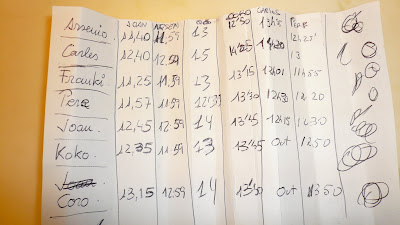 JOAN ARSENI COCO CORO CARLES PERE
Arsenio. 11,40 11,59 13 12'50 13'15 12,25'
Carles 12,40 12:59 15 14'25 14'20 13
Franki 11,25 11:59 13 13'15 12'01 11'55
Pere 11,57 11:59 12'30 13'30 12'30 12'20
Joan. 12,45 12:59 14 13'45 12'15 12'30
KOKO. 12,35 11:59 13 13'45 OUT 12'50
Coro. 13,15 12:59 14 13'50 OUT 13'50